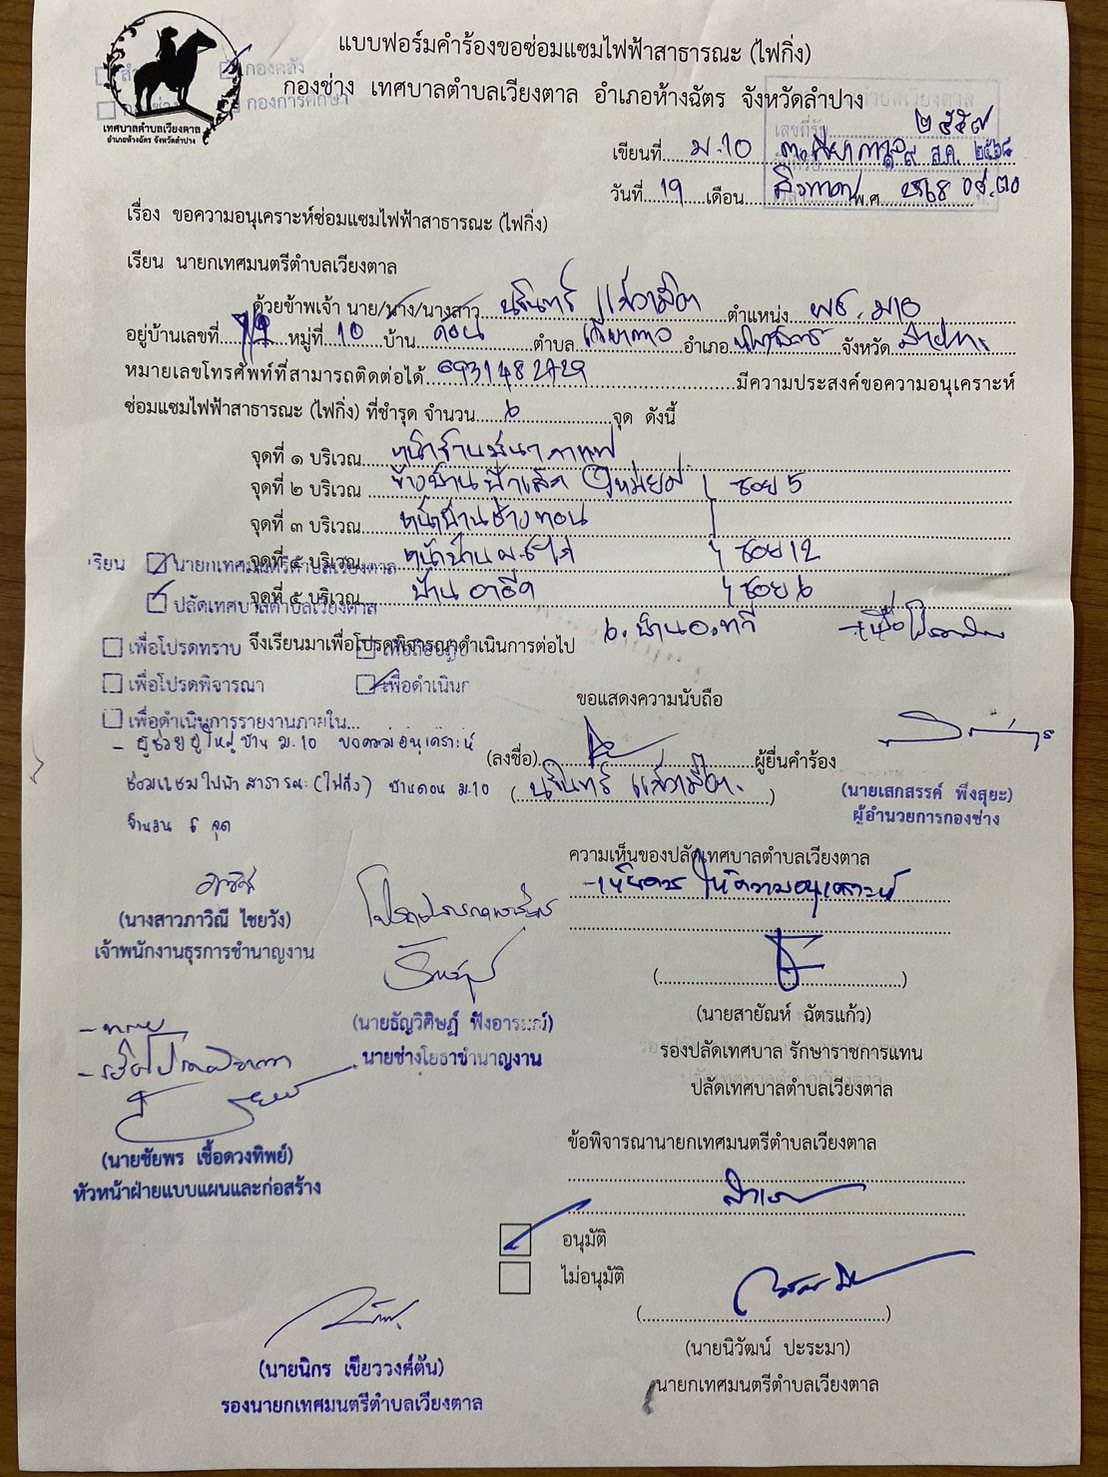 แบบฟอร์มคำร้องขอซ่อมแซมไฟฟ้าสาธารณะ (ไฟกิ่ง)
กองช่าง เทศบาลตำบลเวียงตาล อำเภอห้างฉัตร จังหวัดลำปาง
กองคลัง
กองการศึกษา
เทศบาลตำบลเวียงตาล
อำเภอห้างฉัตร จังหวัดลำปาง
เลขที่รับ ๒๕๕๗
เขียนที่ ม.10 ๑๙ ส.ค. ๒๕๖๘
วันที่ 19 เดือน สิงหาคม พ.ศ. 2568 ๐๙.๓๐
เรื่อง ขอความอนุเคราะห์ซ่อมแซมไฟฟ้าสาธารณะ (ไฟกิ่ง)
เรียน นายกเทศมนตรีตำบลเวียงตาล
ด้วยข้าพเจ้า นาย/นาง/นางสาว นรินทร์ ตำแหน่ง ม10
อยู่บ้านเลขที่ หมู่ที่ 10 บ้าน ดอน ตำบล เวียงตาล อำเภอ ห้างฉัตร จังหวัด ลำปาง
หมายเลขโทรศัพท์ที่สามารถติดต่อได้ 0931482729 มีความประสงค์ขอความอนุเคราะห์
ซ่อมแซมไฟฟ้าสาธารณะ (ไฟกิ่ง) ที่ชำรุด จำนวน 6 จุด ดังนี้
จุดที่ ๑ บริเวณ หน้าร้านมีนา กาแฟ
จุดที่ ๒ บริเวณ ข้างบ้าน ซอย 5
จุดที่ ๓ บริเวณ หน้าบ้านช่างทอน
จุดที่ ๔ บริเวณ หน้าบ้าน ซอย 12
จุดที่ ๕ บริเวณ บ้าน ซอย 6
6. บ้าน อ.ทวี
เรียน นายกเทศมนตรีตำบลเวียงตาล
ปลัดเทศบาลตำบลเวียงตาล
จึงเรียนมาเพื่อโปรดพิจารณาดำเนินการต่อไป
เพื่อโปรดทราบ
เพื่อโปรดพิจารณา เพื่อดำเนินการ
เพื่อดำเนินการรายงานภายใน...
ขอแสดงความนับถือ
- ผู้ช่วยผู้ใหญ่บ้าน ม.10 ขอความอนุเคราะห์
ซ่อมแซมไฟฟ้าสาธารณะ (ไฟกิ่ง) บ้านดอน ม.10
จำนวน 6 จุด
(ลงชื่อ) ผู้ยื่นคำร้อง
(นรินทร์ )
(นายเสกสรรค์ พึ่งสุยะ)
ผู้อำนวยการกองช่าง
ความเห็นของปลัดเทศบาลตำบลเวียงตาล
- เห็นควรให้ความอนุเคราะห์
(นางสาวภาวิณี ไชยวัง)
เจ้าพนักงานธุรการชำนาญงาน
(นายธัญวิศิษฏ์ ฟังอารมณ์)
นายช่างโยธาชำนาญงาน
(นายสายัณห์ ฉัตรแก้ว)
รองปลัดเทศบาล รักษาราชการแทน
ปลัดเทศบาลตำบลเวียงตาล
- ทราบ
(นายชัยพร เชื้อดวงทิพย์)
หัวหน้าฝ่ายแบบแผนและก่อสร้าง
ข้อพิจารณานายกเทศมนตรีตำบลเวียงตาล
อนุมัติ
ไม่อนุมัติ
(นายนิวัฒน์ ปะระมา)
นายกเทศมนตรีตำบลเวียงตาล
(นายนิกร เขียววงศ์ตัน)
รองนายกเทศมนตรีตำบลเวียงตาล